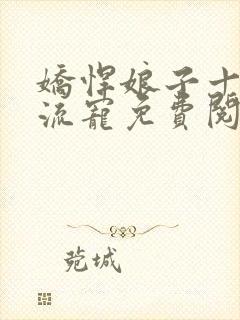 嬌悍娘子十
流寵免費閱
菀城